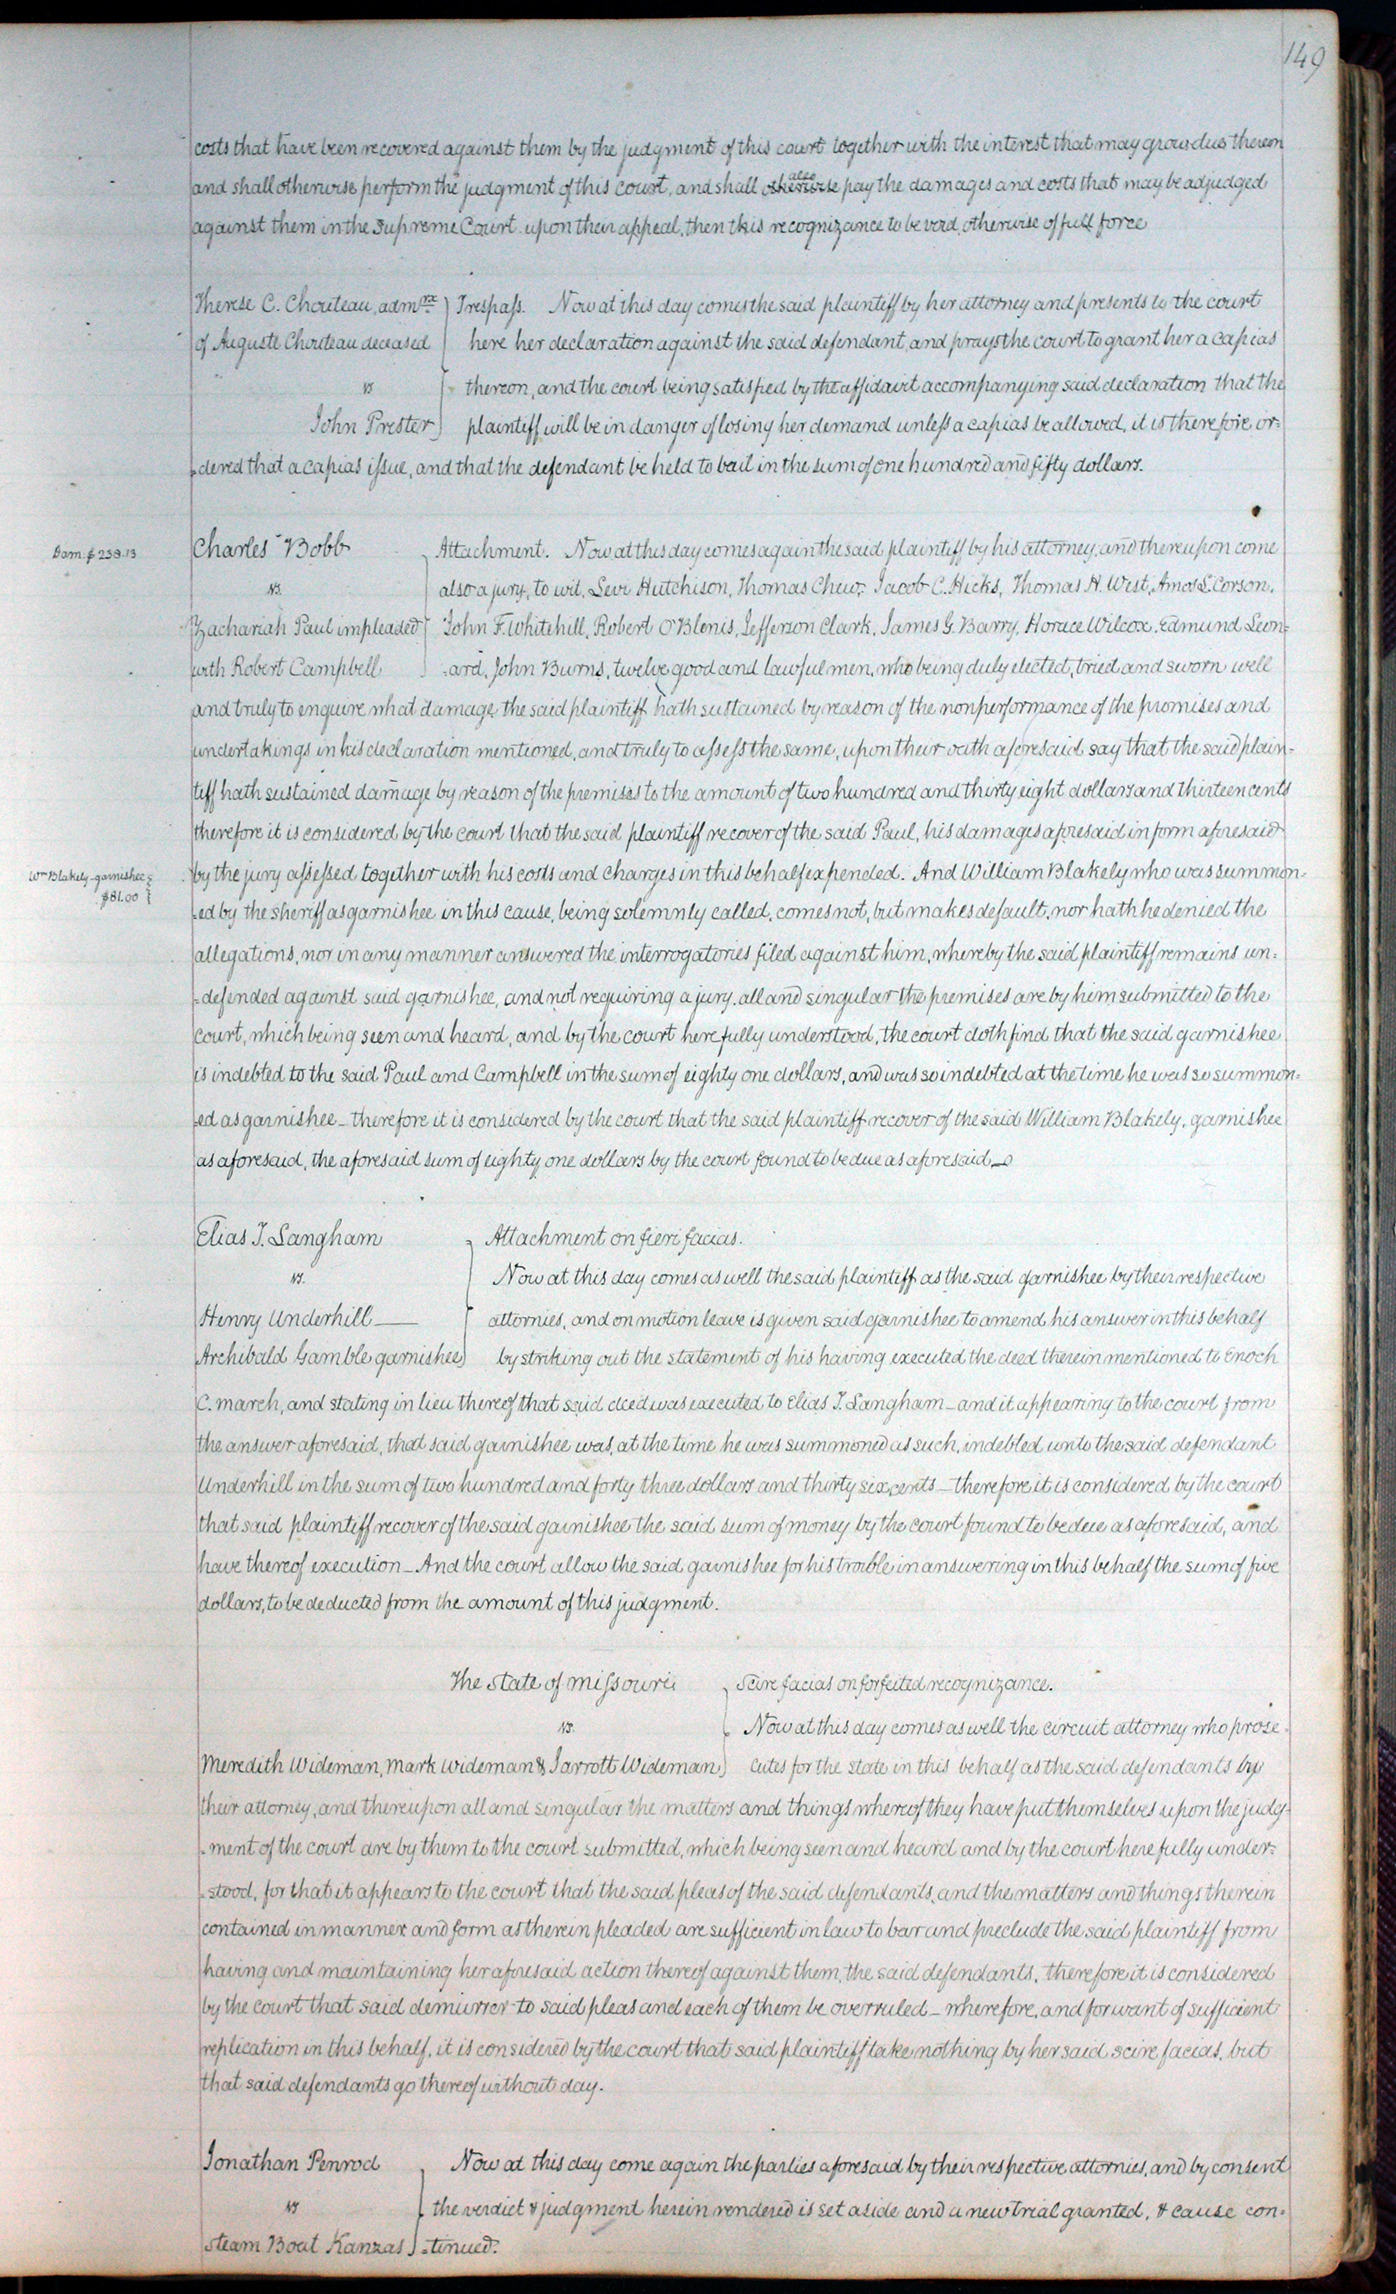 149
costs that have been recovered against them by the judgment of this court together with the interest that may grow due thereon
and shall otherwise perform the judgment of this court, and shall also pay the damages and costs that may be adjudged
against them in the Supreme Court upon their appeal, then this recognizance to be void, otherwise of full force
Therese C. Chouteau, admrx Trespass. Now at this day comes the said plaintiff by her attorney and presents to the court
of Auguste Chouteau deceased here her declaration against the said defendant, and prays the court to grant her a capias
vs thereon, and the court being satisfied by the affidavit accompanying said declaration that the
John Prester plaintiff will be in danger of losing her demand unless a capias be allowed, it is therefore or-
dered that a capias issue, and that the defendant be held to bail in the sum of one hundred and fifty dollars.
Dam. $238.13 Charles Bobb Attachment. Now at this day comes again the said plaintiff by his attorney, and thereupon come
vs. also a jury, to wit, Levi Hutchison, Thomas Chew, Jacob C. Hicks, Thomas H. West, Amos L. Corson,
Zachariah Paul impleaded John F. Whitehill, Robert O'Blenis, Jefferson Clark, James G. Barry, Horace Wilcox, Edmund Leon-
with Robert Campbell -ard, John Burns, twelve good and lawful men, who being duly elected, tried and sworn well
and truly to enquire what damage the said plaintiff hath sustained by reason of the nonperformance of the promises and
undertakings in his declaration mentioned, and truly to assess the same, upon their oath aforesaid say that the said plain-
tiff hath sustained damage by reason of the premises to the amount of two hundred and thirty eight dollars and thirteen cents
therefore it is considered by the court that the said plaintiff recover of the said Paul, his damages aforesaid in form aforesaid
Wm Blakely garnishee by the jury assessed together with his costs and charges in this behalf expended. And William Blakely who was summon-
$81.00 -ed by the sheriff as garnishee in this cause, being solemnly called, comes not, but makes default, nor hath he denied the
allegations, nor in any manner answered the interrogatories filed against him, whereby the said plaintiff remains un-
-defended against said garnishee, and not requiring a jury, all and singular the premises are by him submitted to the
court, which being seen and heard, and by the court here fully understood, the court doth find that the said garnishee
is indebted to the said Paul and Campbell in the sum of eighty one dollars, and was so indebted at the time he was so summon-
ed as garnishee - therefore it is considered by the court that the said plaintiff recover of the said William Blakely, garnishee
as aforesaid, the aforesaid sum of eighty one dollars by the court found to be due as aforesaid
Elias T. Langham Attachment on fieri facias.
vs. Now at this day comes as well the said plaintiff as the said garnishee by their respective
Henry Underhill attornies, and on motion leave is given said garnishee to amend his answer in this behalf
Archibald Gamble garnishee by striking out the statement of his having executed the deed therein mentioned to Enoch
C. March, and stating in lieu thereof that said deed was executed to Elias T. Langham - and it appearing to the court from
the answer aforesaid, that said garnishee was, at the time he was summoned as such, indebted unto the said defendant
Underhill in the sum of two hundred and forty three dollars and thirty six cents - therefore it is considered by the court
that said plaintiff recover of the said garnishee the said sum of money by the court found to be due as aforesaid, and
have thereof execution - And the court allow the said garnishee for his trouble in answering in this behalf the sum of five
dollars, to be deducted from the amount of this judgment.
The State of Missouri Scire facias on forfeited recognizance.
vs. Now at this day comes as well the circuit attorney who prose-
Meredith Wideman, Mark Wideman & Jarrott Wideman cutes for the state in this behalf as the said defendants by
their attorney, and thereupon all and singular the matters and things whereof they have put themselves upon the judg-
-ment of the court are by them to the court submitted, which being seen and heard and by the court here fully under-
-stood, for that it appears to the court that the said pleas of the said defendants, and the matters and things therein
contained in manner and form as therein pleaded are sufficient in law to bar and preclude the said plaintiff from
having and maintaining her aforesaid action thereof against them, the said defendants, therefore it is considered
by the court that said demurrer to said pleas and each of them be overruled - wherefore, and for want of sufficient
replication in this behalf, it is considered by the court that said plaintiff take nothing by her said scire facias, but
that said defendants go thereof without day.
Jonathan Penrod Now at this day come again the parties aforesaid by their respective attornies, and by consent
vs the verdict & judgment herein rendered is set aside and a new trial granted, & cause con-
Steam Boat Kanzas -tinued.